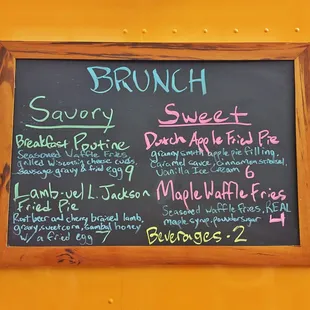 BRUNCH
Savory
Breakfast Poutine
Seasoned Waffle Fries,
grilled Wisconsin cheese curds,
Sausage gravy & fried egg 9
Lamb-uel L. Jackson
Fried Pie
Root beer and cherry braised lamb,
gravy, sweet corn, Sambal honey
w/ a fried egg 7
Sweet
Dutch Apple Fried Pie
granny smith apple pie filling,
Caramel sauce, cinnamon streusel,
Vanilla Ice Cream 6
Maple Waffle Fries
Seasoned waffle fries, REAL
maple syrup, powder sugar 4
Beverages - 2